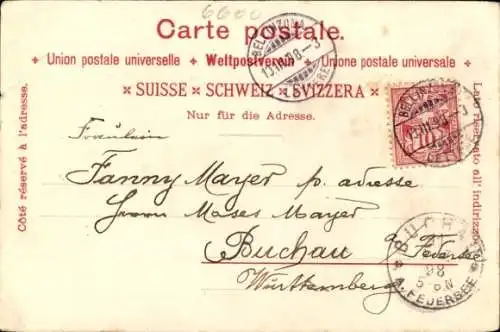 6600
Carte postale.
Union postale universelle ✦ Weltpostverein ✦ Unione postale universale
SUISSE × SCHWEIZ × SVIZZERA ×
Nur für die Adresse.
Côté réservé à l'adresse.
Lato riservato all' indirizzo.
BELLINZONA
13.III.98-3
LETTERE
10
Fräulein
Fanny Mayer p. adresse
Herrn Moses Mayer
Buchau a/ Federsee
Württemberg
BUCHAU
98
5-6.N
A. FEDERSEE